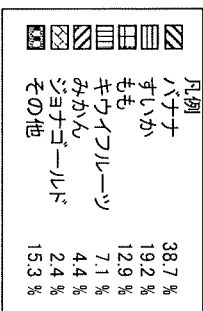 凡例
バナナ 38.7 %
すいか 19.2 %
もも 12.9 %
キウイフルーツ 7.1 %
みかん 4.4 %
ジョナゴールド 2.4 %
その他 15.3 %